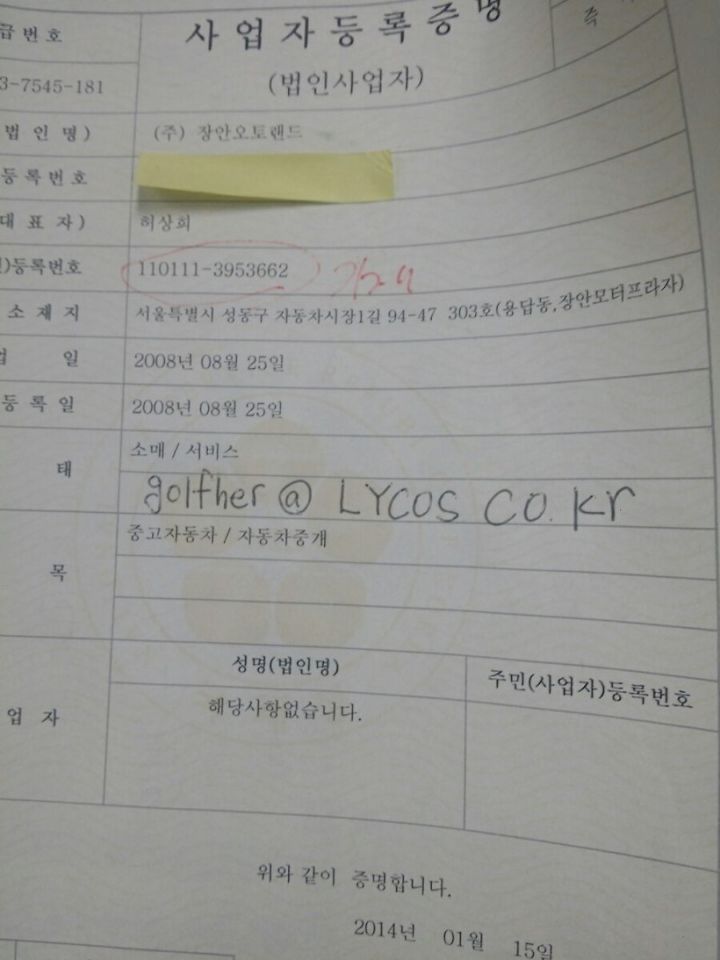 급번호
사업자등록증명
(법인사업자)
3-7545-181
법인명)
(주) 장안오토랜드
등록번호
대표자)
허상회
)등록번호
110111-3953662
소재지
서울특별시 성동구 자동차시장1길 94-47 303호(용답동,장안모터프라자)
업 일
2008년 08월 25일
등록일
2008년 08월 25일
태
소매 / 서비스
golfher @ LYCOS CO. Kr
목
중고자동차 / 자동차중개
성명(법인명)
주민(사업자)등록번호
업 자
해당사항없습니다.
위와 같이 증명합니다.
2014년 01월 15일